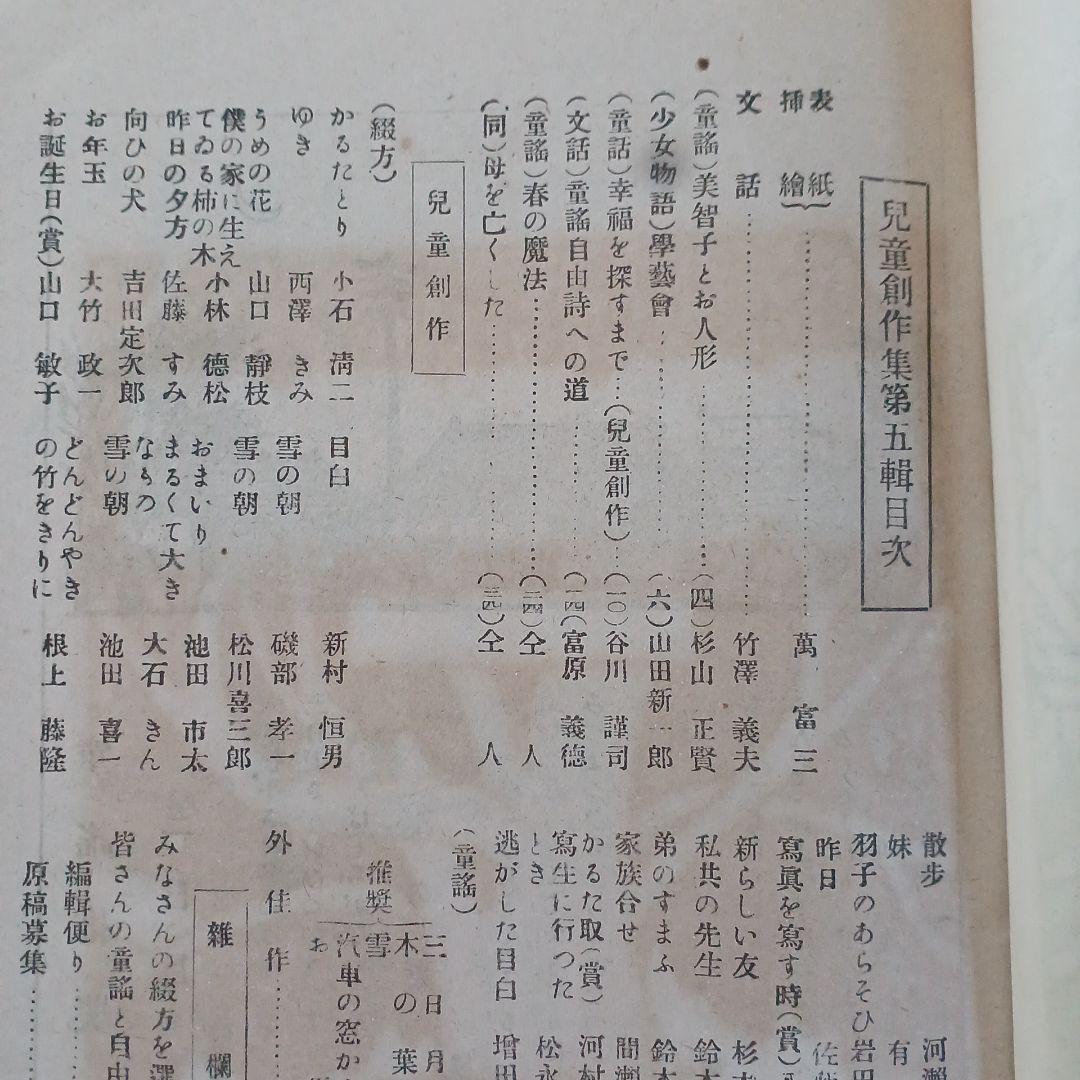 兒童創作集第五輯目次
表紙
挿繪}……萬富三
文話……竹澤義夫
(童謠)美智子とお人形……(四)杉山正賢
(少女物語)學藝會……(六)山田新一郎
(童話)幸福を探すまで…(兒童創作)…(一〇)谷川謹司
(文話)童謠自由詩への道……(一四)富原義德
(童謠)春の魔法……(二四)仝人
(同)母を亡くした……(三四)仝人
兒童創作
(綴方)
かるたとり 小石淸二
ゆき 西澤きみ
うめの花 山口靜枝
僕の家に生え
てゐる柿の木 小林德松
昨日の夕方 佐藤すみ
向ひの犬 吉田定次郎
お年玉 大竹政一
お誕生日(賞) 山口敏子
目白 新村恒男
雪の朝 磯部孝一
雪の朝 松川喜三郎
おまいり 池田市太
まるくて大き
なもの 大石きん
雪の朝 池田喜一
どんどんやき
の竹をきりに 根上藤隆
散步 河瀨
妹 有
羽子のあらそひ 岩田
昨日 佐
寫眞を寫す時(賞)
新らしい友 杉
私共の先生 鈴木
弟のすまふ 鈴木
家族合せ 間瀨
かるた取(賞) 河村
寫生に行つた
とき 松永
逃がした目白 增田
(童謠)
推奬
三日月
木の葉
雪
汽車の窓か
お
外佳作……
雜欄
みなさんの綴方を選
皆さんの童謠と自由
編輯便り……
原稿募集……